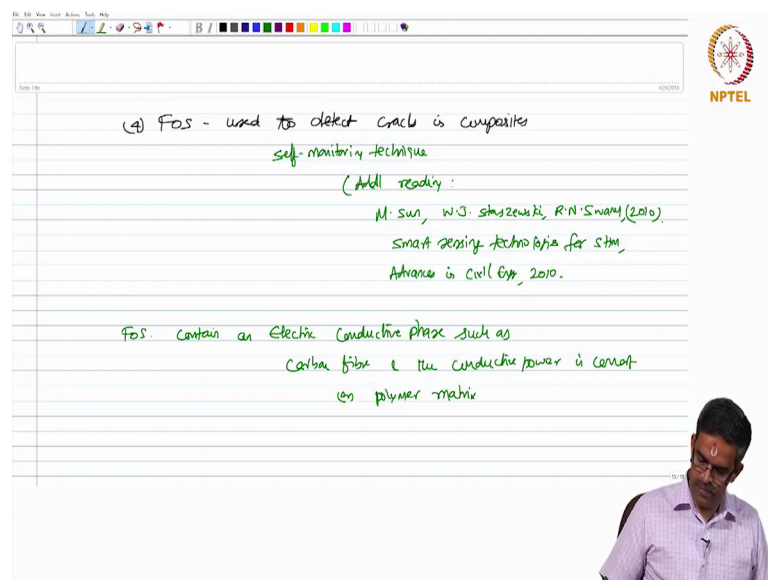 File Edit View Insert Actions Tools Help
B I
Note Title
6/24/2018
NPTEL
(4) FOS - used to detect crack in composites
self-monitoring technique
(Addl reading:
M. Sun, W.J. Staszewski, R.N. Swamy, (2010)
Smart sensing technologies for SHM,
Advances in Civil Engg, 2010.
FOS. contain an Electric Conductive phase such as
carbon fibre & the conductive power in cement
(or) polymer matrix